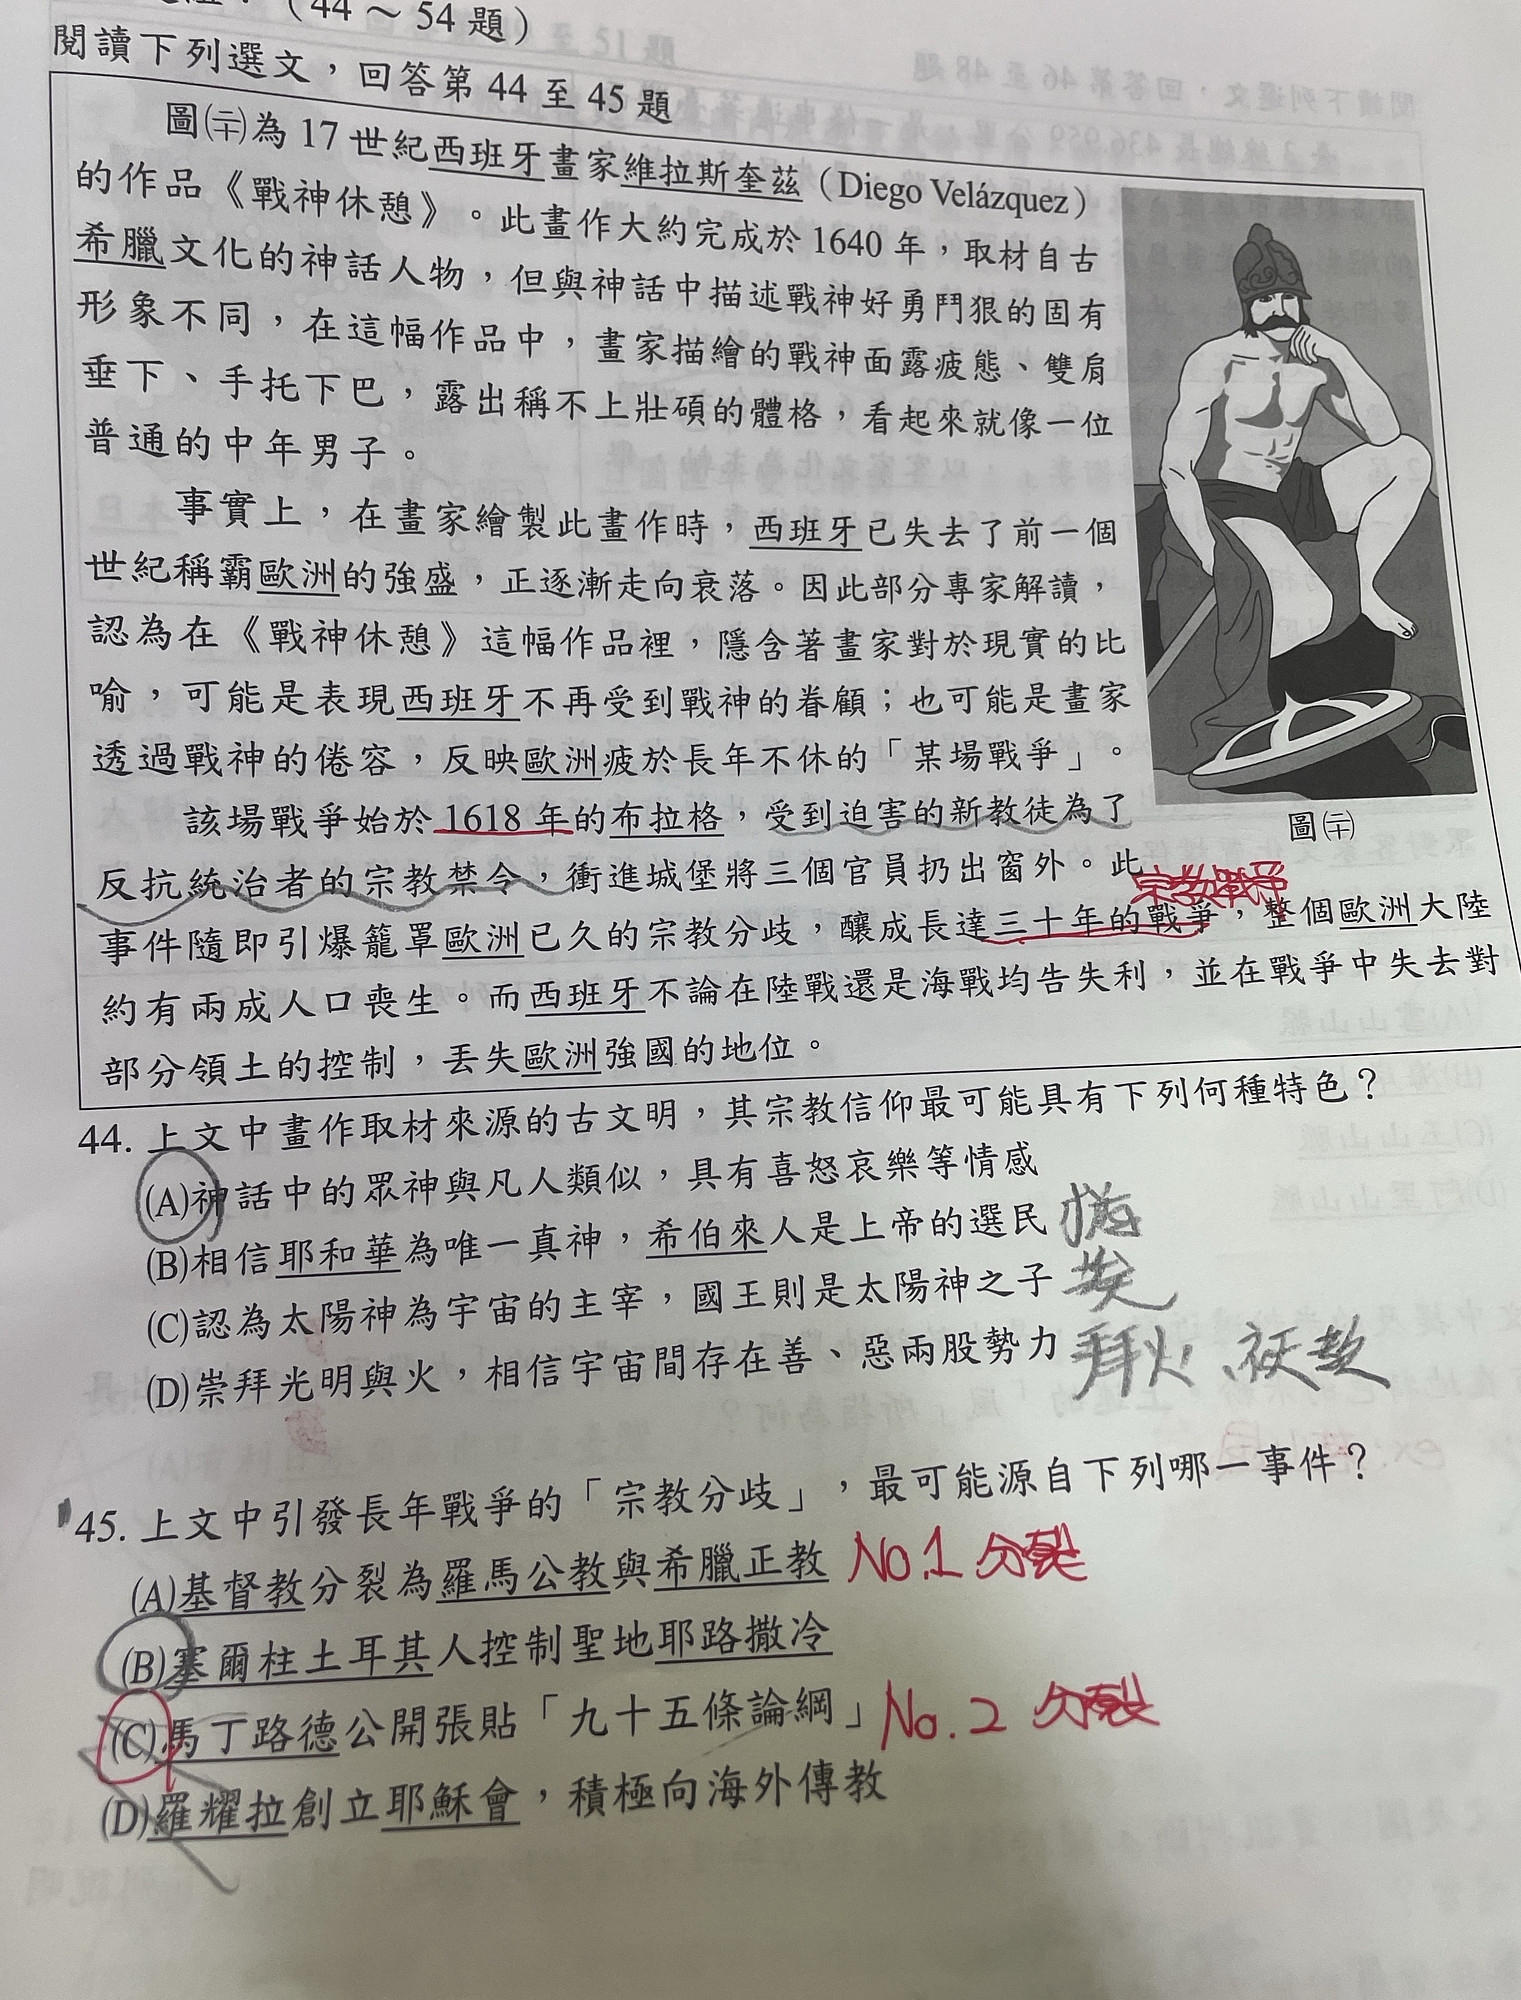 (44～54題)
閱讀下列選文，回答第44至45題
圖㈩為17世紀西班牙畫家維拉斯奎茲（Diego Velázquez）
的作品《戰神休憩》。此畫作大約完成於1640年，取材自古
希臘文化的神話人物，但與神話中描述戰神好勇鬥狠的固有
形象不同，在這幅作品中，畫家描繪的戰神面露疲態、雙肩
垂下、手托下巴，露出稱不上壯碩的體格，看起來就像一位
普通的中年男子。
事實上，在畫家繪製此畫作時，西班牙已失去了前一個
世紀稱霸歐洲的強盛，正逐漸走向衰落。因此部分專家解讀，
認為在《戰神休憩》這幅作品裡，隱含著畫家對於現實的比
喻，可能是表現西班牙不再受到戰神的眷顧；也可能是畫家
透過戰神的倦容，反映歐洲疲於長年不休的「某場戰爭」。
該場戰爭始於1618年的布拉格，受到迫害的新教徒為了
反抗統治者的宗教禁令，衝進城堡將三個官員扔出窗外。此
宗教戰爭
事件隨即引爆籠罩歐洲已久的宗教分歧，釀成長達三十年的戰爭，整個歐洲大陸
約有兩成人口喪生。而西班牙不論在陸戰還是海戰均告失利，並在戰爭中失去對
部分領土的控制，丟失歐洲強國的地位。
44. 上文中畫作取材來源的古文明，其宗教信仰最可能具有下列何種特色？
(A)神話中的眾神與凡人類似，具有喜怒哀樂等情感
(B)相信耶和華為唯一真神，希伯來人是上帝的選民
(C)認為太陽神為宇宙的主宰，國王則是太陽神之子 埃
(D)崇拜光明與火，相信宇宙間存在善、惡兩股勢力 拜火、祆教
45. 上文中引發長年戰爭的「宗教分歧」，最可能源自下列哪一事件？
(A)基督教分裂為羅馬公教與希臘正教 No.1 分裂
(B)塞爾柱土耳其人控制聖地耶路撒冷
(C)馬丁路德公開張貼「九十五條論綱」 No.2 分裂
(D)羅耀拉創立耶穌會，積極向海外傳教